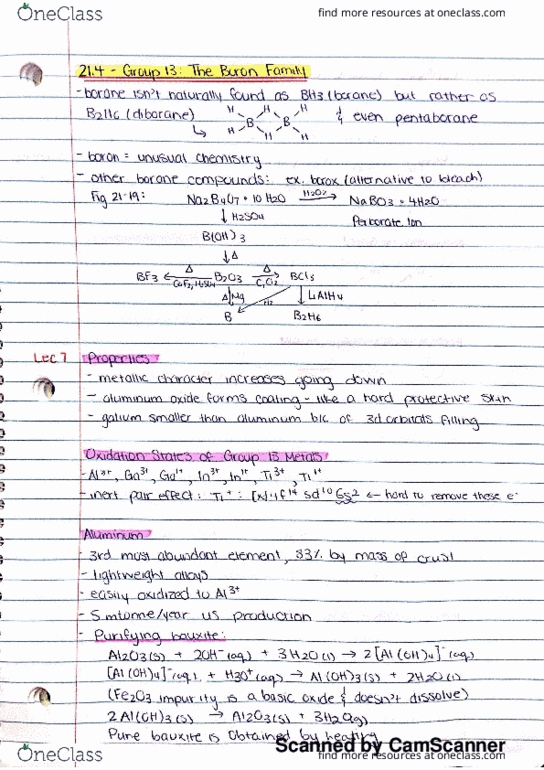 OneClass
find more resources at oneclass.com
21.4 - Group 13: The Boron Family
- borane isn't naturally found as BH3 (borane) but rather as
B2H6 (diborane) H H H B B H H H & even pentaborane
- boron = unusual chemistry
- other borane compounds: ex. borox (alternative to bleach)
Fig 21-19: Na2B4O7 • 10 H2O H2O2 → NaBO3 • 4H2O
↓ H2SO4 Perborate Ion
B(OH)3
↓ Δ
BF3 ← Δ CaF2, H2SO4 B2O3 Δ → C, Cl2 BCl3
Δ↓Mg H2 ↓ LiAlH4
B B2H6
Lec 7 Properties
- metallic character increases going down
- aluminum oxide forms coating - like a hard protective skin
- galium smaller than aluminum b/c of 3d orbitals filling
Oxidation States of Group 13 Metals
- Al3+, Ga3+, Ga1+, In3+, In1+, Tl3+, Tl1+
- inert pair effect: Tl+: [Xe]4f14 5d10 6s2 ← hard to remove these e-
Aluminum
- 3rd most abundant element, 83% by mass of crust
- lightweight alloys
- easily oxidized to Al3+
- 5 mtonne/year US production
- Purifying bauxite:
Al2O3(s) + 2OH-(aq) + 3H2O(l) → 2[Al(OH)4]-(aq)
[Al(OH)4]-(aq) + H3O+(aq) → Al(OH)3(s) + 2H2O(l)
(Fe2O3 impurity is a basic oxide & doesn't dissolve)
2Al(OH)3(s) → Al2O3(s) + 3H2O(g)
Pure bauxite is obtained by heating
Scanned by CamScanner
OneClass
find more resources at oneclass.com